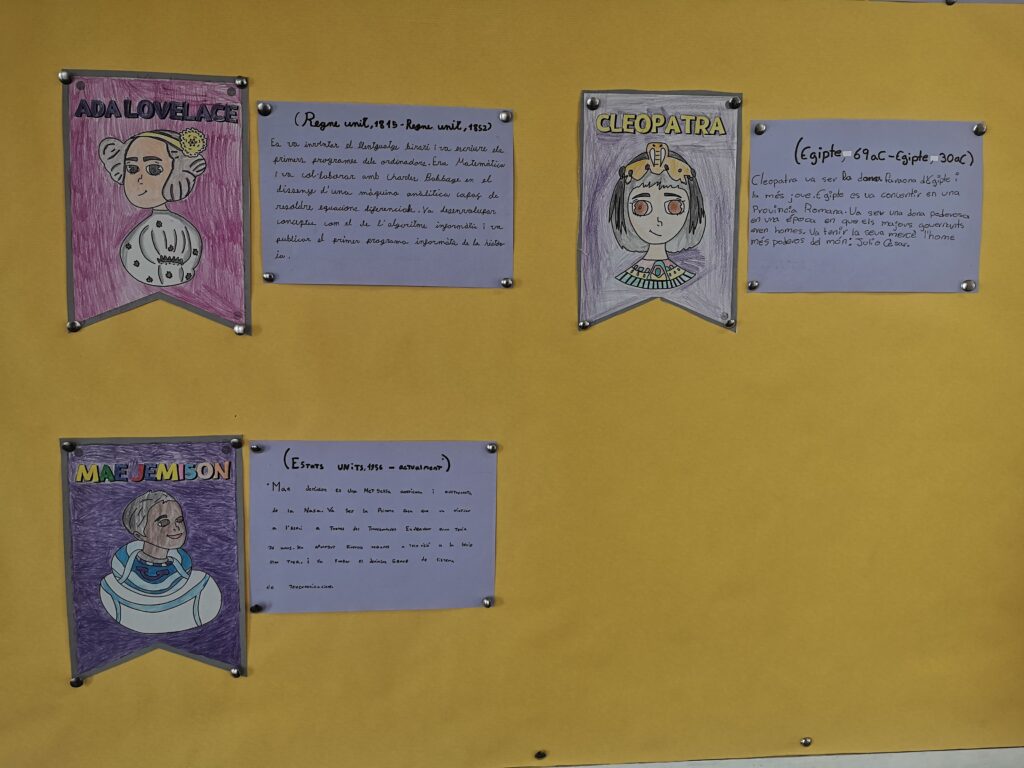 ADA LOVELACE
(Regne unit, 1815 - Regne unit, 1852)
Es va inventar el llenguatge binari i va escriure els
primers programes dels ordinadors. Era Matemàtica
i va col·laborar amb Charles Babbage en el
disseny d'una màquina analítica capaç de
resoldre equacions diferencials. Va desenvolupar
conceptes com el de l'algoritme informàtic i va
publicar el primer programa informàtic de la histò
ia.
CLEOPATRA
(Egipte, 69aC - Egipte, 30aC)
Cleopatra va ser la dona Faraona d'Egipte i
la més jove. Egipte es va convertir en una
Provincia Romana. Va ser una dona poderosa
en una época en que els majors governants
eren homes. Va tenir la seva mercè l'home
més poderos del món: Julio César.
MAE JEMISON
(ESTATS UNITS, 1956 - ACTUALMENT)
Mae Jemison es una americana i
de la Nasa. Va ser la Primera que va
a l'espai a Endeavour
anys.
i va el de sistema
de